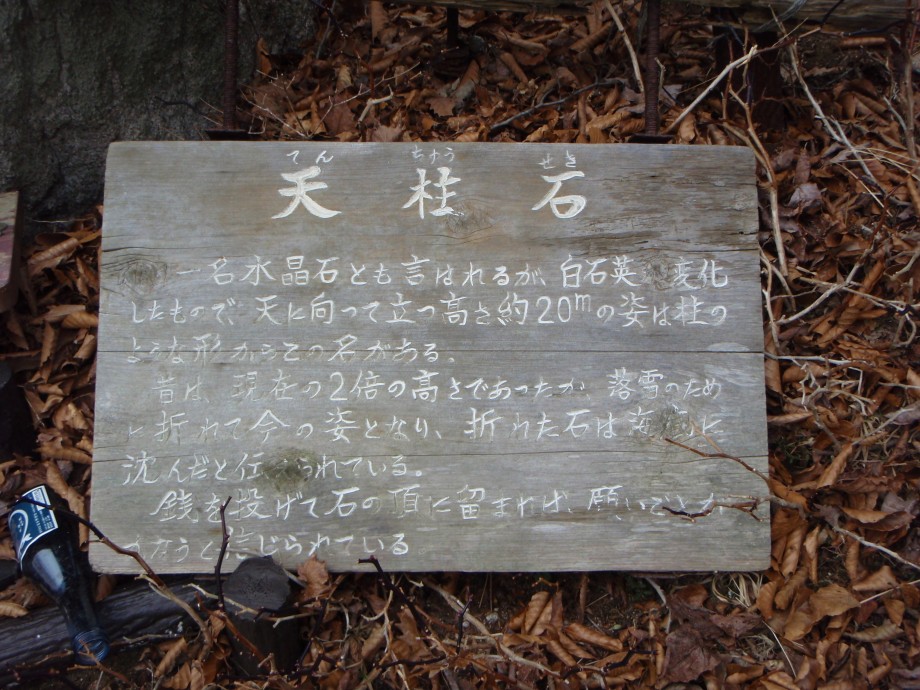 てん ちゅう せき
天 柱 石
一名水晶石とも言われるが、白石英 変化
したもので、天に向って立つ高さ約20mの姿は柱の
ような形からこの名がある、
昔は、現在の2倍の高さであったが 落雪のため
に折れて今の姿となり、折れた石は海 に
沈んだと伝 られている。
銭を投げて石の頂に留まれば、願いごとが
かなうと信じられている